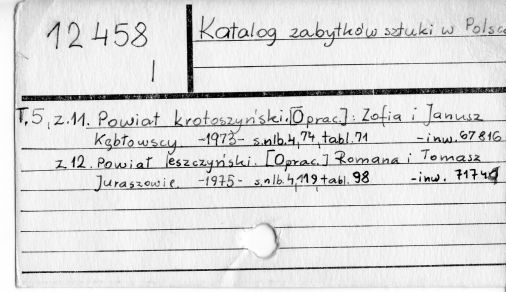 12 458
I
Katalog zabytków sztuki w Polsce
T.5, z.11. Powiat krotoszyński. [Oprac.]: Zofia i Janusz
Kębłowscy. -1973- s.nlb.4, 74, tabl. 71 -inw. 67816
z 12. Powiat leszczyński. [Oprac.] Romana i Tomasz
Juraszowie. -1975- s.nlb.4, 119, tabl. 98 -inw.